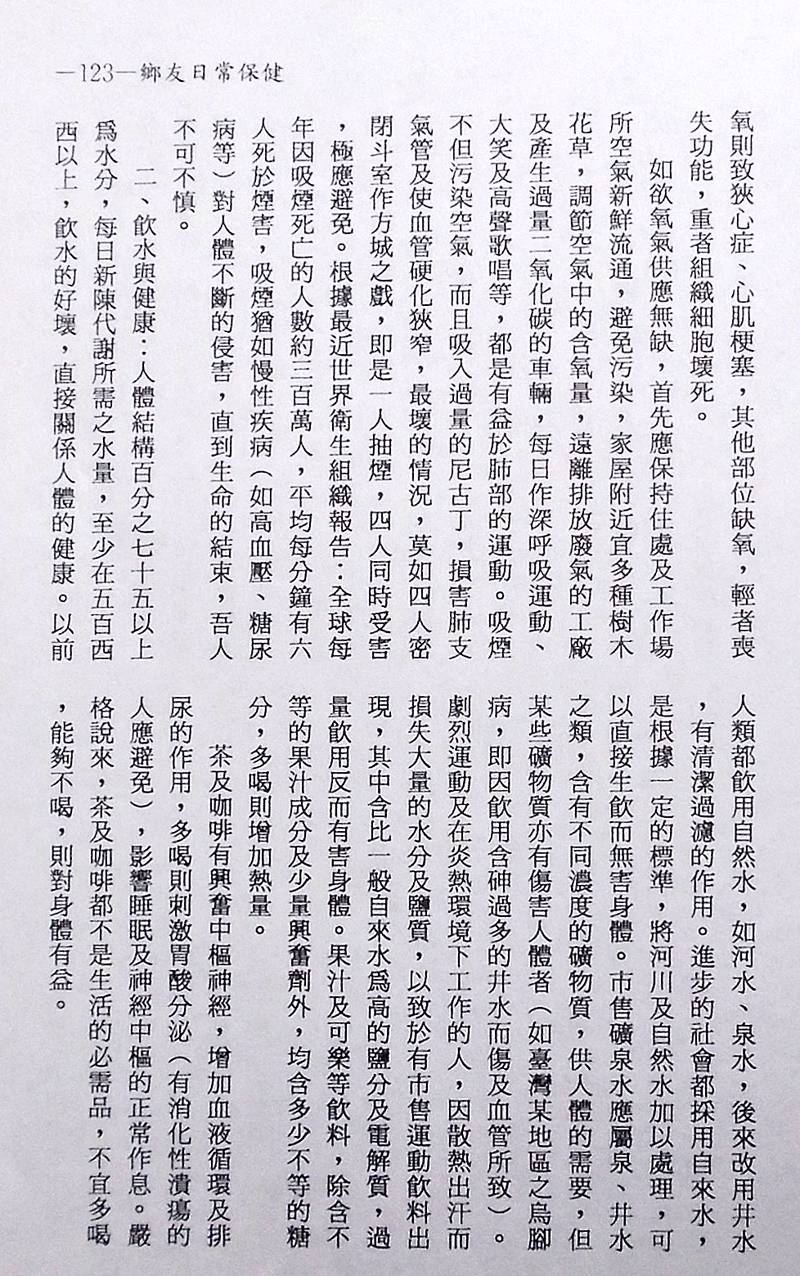 —123—鄉友日常保健
氧則致狹心症、心肌梗塞，其他部位缺氧，輕者喪
失功能，重者組織細胞壞死。
如欲氧氣供應無缺，首先應保持住處及工作場
所空氣新鮮流通，避免污染，家屋附近宜多種樹木
花草，調節空氣中的含氧量，遠離排放廢氣的工廠
及產生過量二氧化碳的車輛，每日作深呼吸運動、
大笑及高聲歌唱等，都是有益於肺部的運動。吸煙
不但污染空氣，而且吸入過量的尼古丁，損害肺支
氣管及使血管硬化狹窄，最壞的情況，莫如四人密
閉斗室作方城之戲，即是一人抽煙，四人同時受害
，極應避免。根據最近世界衛生組織報告：全球每
年因吸煙死亡的人數約三百萬人，平均每分鐘有六
人死於煙害，吸煙猶如慢性疾病（如高血壓、糖尿
病等）對人體不斷的侵害，直到生命的結束，吾人
不可不慎。
二、飲水與健康：人體結構百分之七十五以上
爲水分，每日新陳代謝所需之水量，至少在五百西
西以上，飲水的好壞，直接關係人體的健康。以前
人類都飲用自然水，如河水、泉水，後來改用井水
，有清潔過濾的作用。進步的社會都採用自來水，
是根據一定的標準，將河川及自然水加以處理，可
以直接生飲而無害身體。市售礦泉水應屬泉、井水
之類，含有不同濃度的礦物質，供人體的需要，但
某些礦物質亦有傷害人體者（如臺灣某地區之烏腳
病，即因飲用含砷過多的井水而傷及血管所致）。
劇烈運動及在炎熱環境下工作的人，因散熱出汗而
損失大量的水分及鹽質，以致於有市售運動飲料出
現，其中含比一般自來水爲高的鹽分及電解質，過
量飲用反而有害身體。果汁及可樂等飲料，除含不
等的果汁成分及少量興奮劑外，均含多少不等的糖
分，多喝則增加熱量。
茶及咖啡有興奮中樞神經，增加血液循環及排
尿的作用，多喝則刺激胃酸分泌（有消化性潰瘍的
人應避免），影響睡眠及神經中樞的正常作息。嚴
格說來，茶及咖啡都不是生活的必需品，不宜多喝
，能夠不喝，則對身體有益。